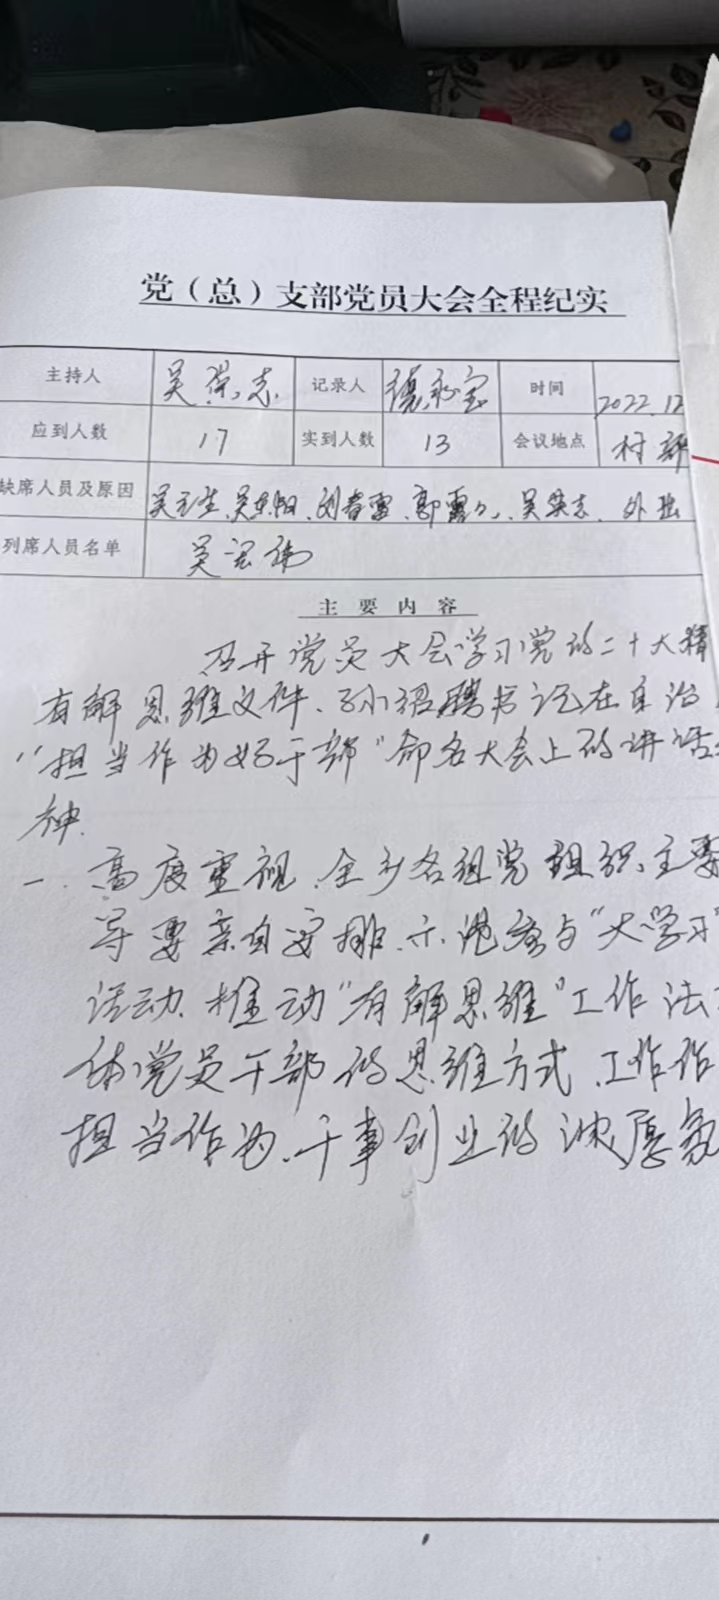 党（总）支部党员大会全程纪实
主持人 吴荣志 记录人 永宝 时间 2022.12
应到人数 17 实到人数 13 会议地点 村部
缺席人员及原因 吴玉生、吴 阳、刘春雷、郭露、吴荣志、外出
列席人员名单 吴宏伟
主要内容
召开党员大会学习党的二十大精
有解思维文件、孙绍骋书记在自治
“担当作为好干部”命名大会上的讲话
神.
一. 高度重视、全乡各组党组织、主要
导要亲自安排、示范参与“大学习”
活动、推动“有解思维”工作法
体党员干部的思维方式、工作作
担当作为、干事创业的浓厚氛